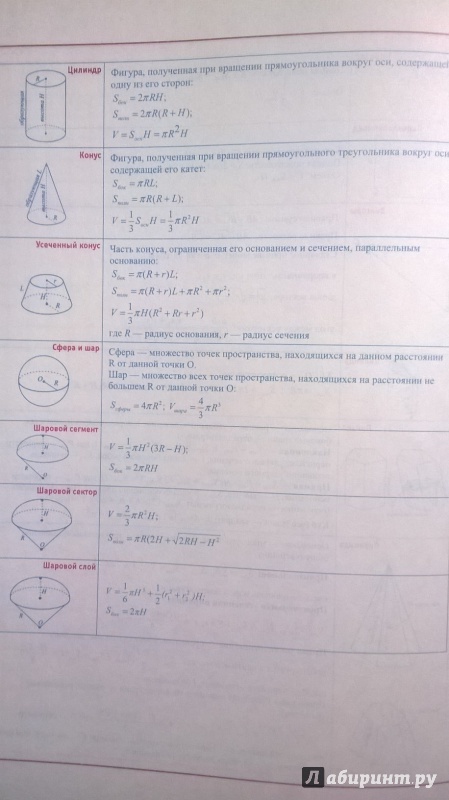 Цилиндр
Фигура, полученная при вращении прямоугольника вокруг оси, содержащей
одну из его сторон:
S_бок = 2πRH;
S_полн = 2πR(R + H);
V = S_осн H = πR²H
образующая
высота H
R
Конус
Фигура, полученная при вращении прямоугольного треугольника вокруг оси
содержащей его катет:
S_бок = πRL;
S_полн = πR(R + L);
V = 1/3 S_осн H = 1/3 πR²H
образующая L
высота H
R
Усеченный конус
Часть конуса, ограниченная его основанием и сечением, параллельным
основанию:
S_бок = π(R + r)L;
S_полн = π(R + r)L + πR² + πr²;
V = 1/3 πH(R² + Rr + r²)
где R — радиус основания, r — радиус сечения
L
r
H
R
Сфера и шар
Сфера — множество точек пространства, находящихся на данном расстоянии
R от данной точки O.
Шар — множество всех точек пространства, находящихся на расстоянии не
большем R от данной точки O:
S_сферы = 4πR²; V_шара = 4/3 πR³
O
R
Шаровой сегмент
V = 1/3 πH²(3R − H);
S_бок = 2πRH
H
R
O
Шаровой сектор
V = 2/3 πR²H;
S_полн = πR(2H + √2RH − H²
H
R
O
Шаровой слой
V = 1/6 πH³ + 1/2 (r₁² + r₂²)H;
S_бок = 2πH
H
R
O
Лабиринт.ру